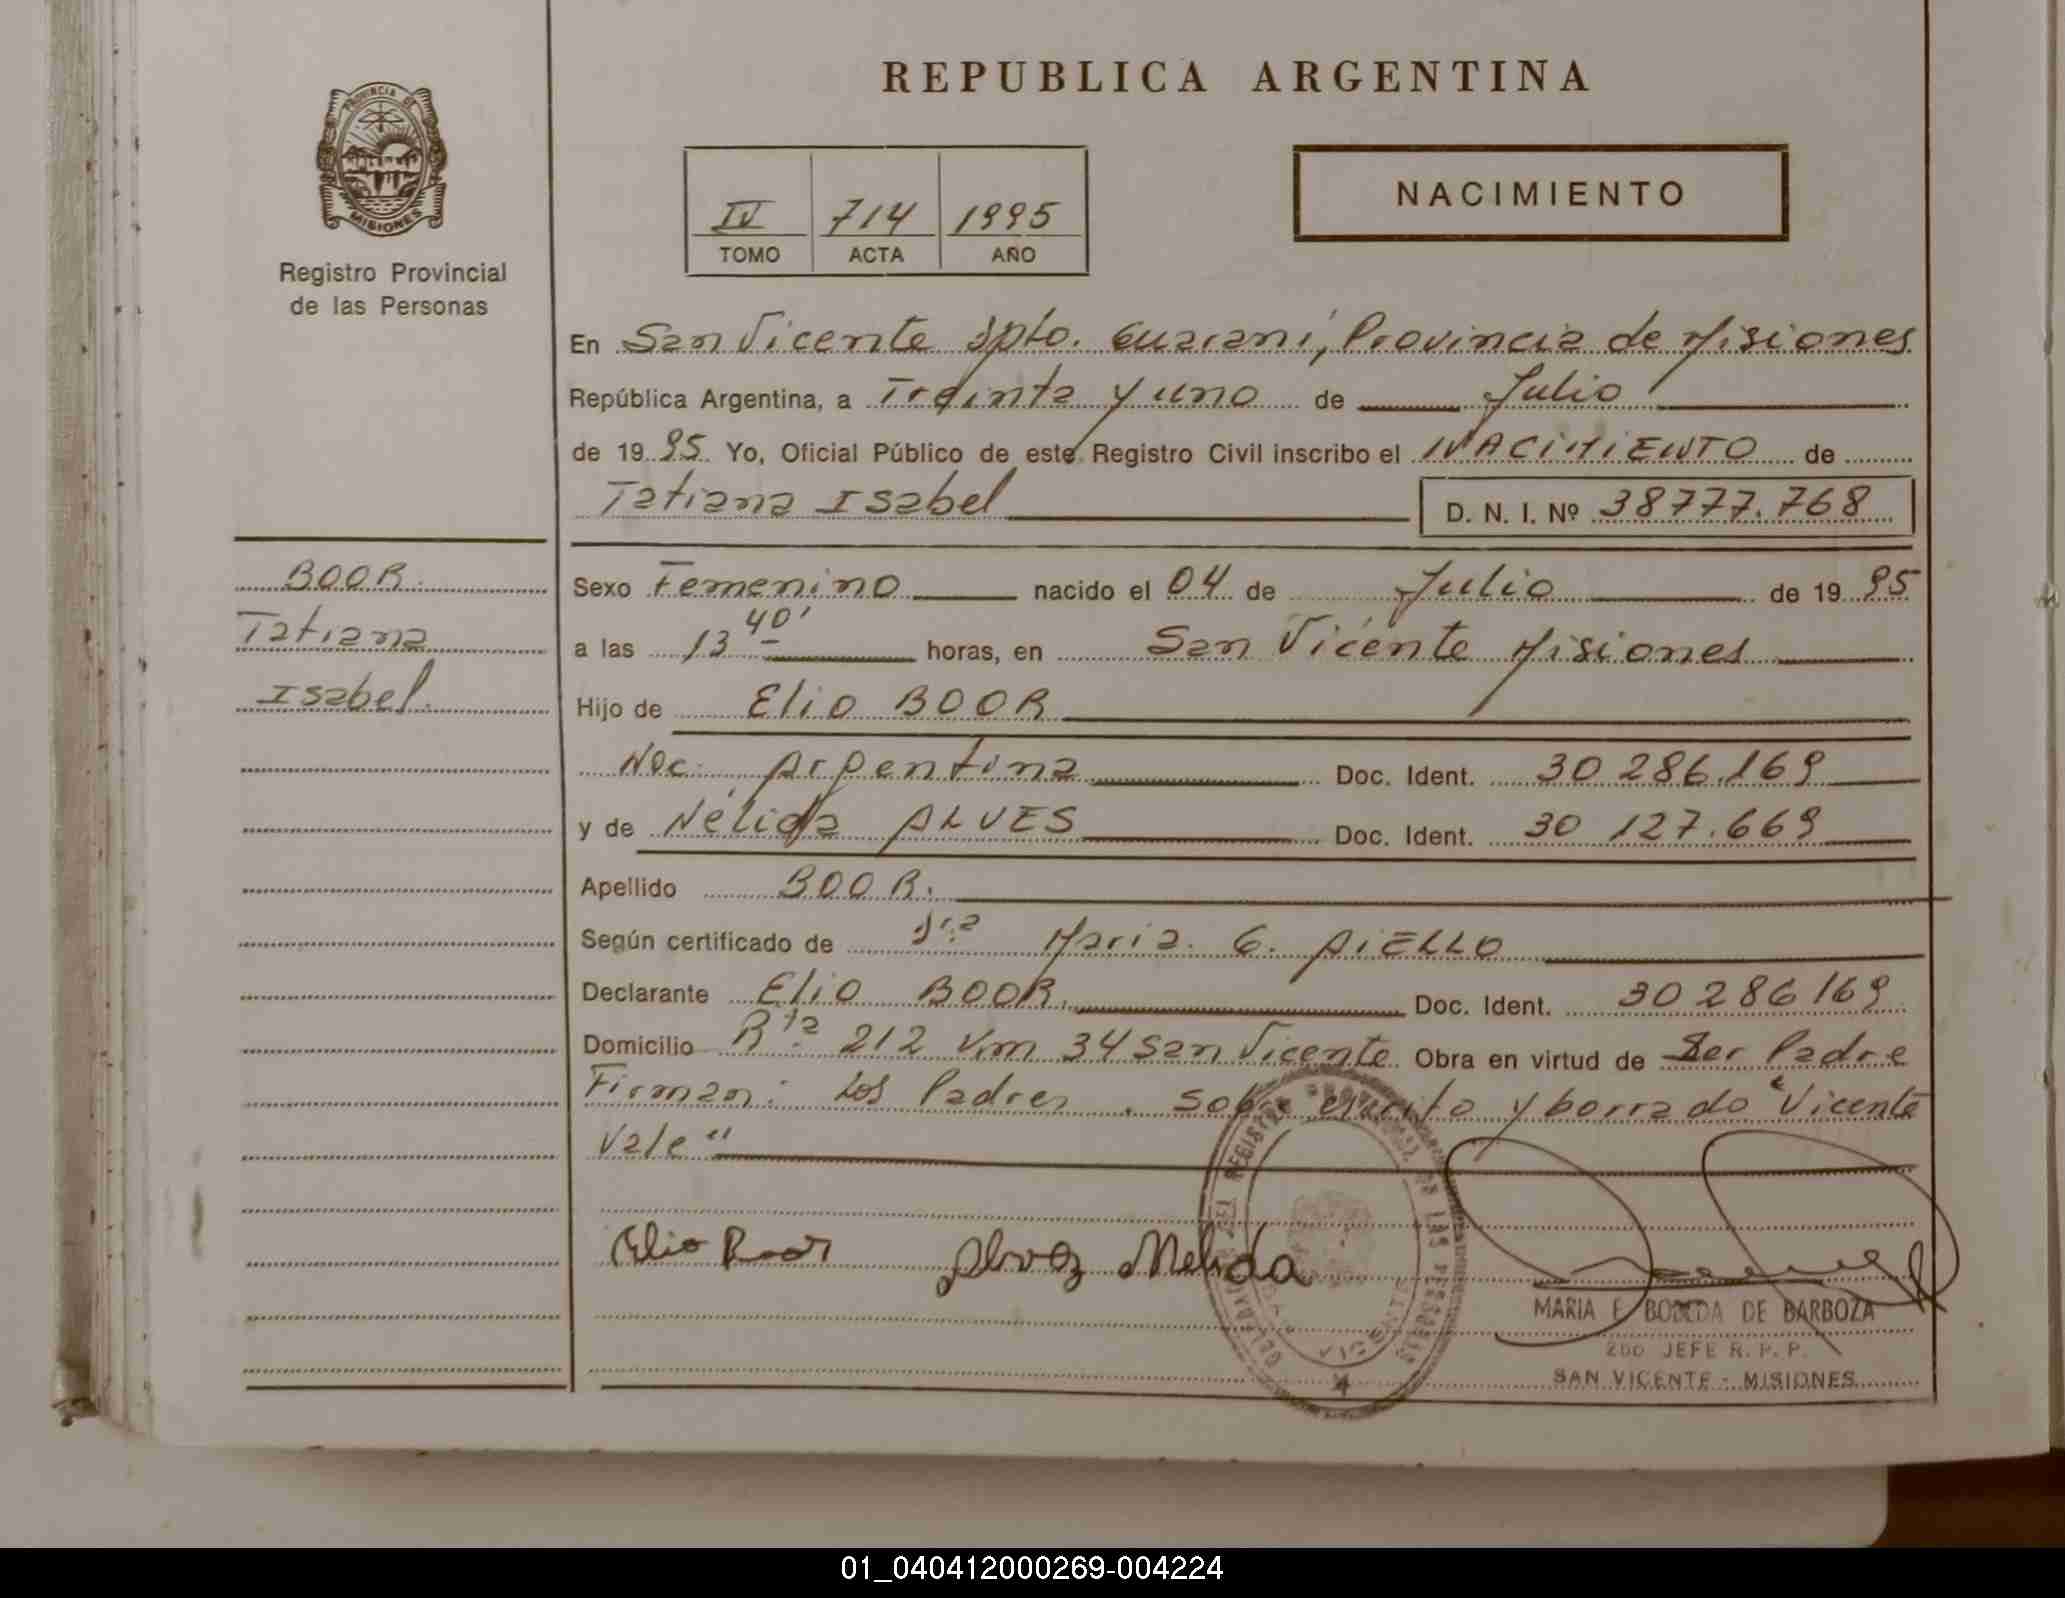 REPUBLICA ARGENTINA
PROVINCIA DE
MISIONES
Registro Provincial
de las Personas
IV 714 1995
TOMO ACTA AÑO
NACIMIENTO
En San Vicente Dpto. Guaraní, Provincia de Misiones
República Argentina, a Treinta y uno de Julio
de 1995 Yo, Oficial Público de este Registro Civil inscribo el NACIMIENTO de
Tatiana Isabel D. N. I. Nº 38777.768
BOOR.
Tatiana
Isabel.
Sexo Femenino nacido el 04 de Julio de 1995
a las 13 40' horas, en San Vicente Misiones
Hijo de Elio BOOR
Nac. Argentina Doc. Ident. 30 286.169
y de Nélida ALVES Doc. Ident. 30 127.669
Apellido BOOR.
Según certificado de Dra Maria. G. AIELLO
Declarante Elio BOOR. Doc. Ident. 30286169
Domicilio Rta 212 Km 34 San Vicente Obra en virtud de Ser Padre
Firman: Los Padres. Sobre escrito y borrado "Vicente
Vale"
Elio Boor Alvez Nelida
MARIA E. DE BARBOZA
2DO JEFE R. P. P.
SAN VICENTE - MISIONES
01_040412000269-004224